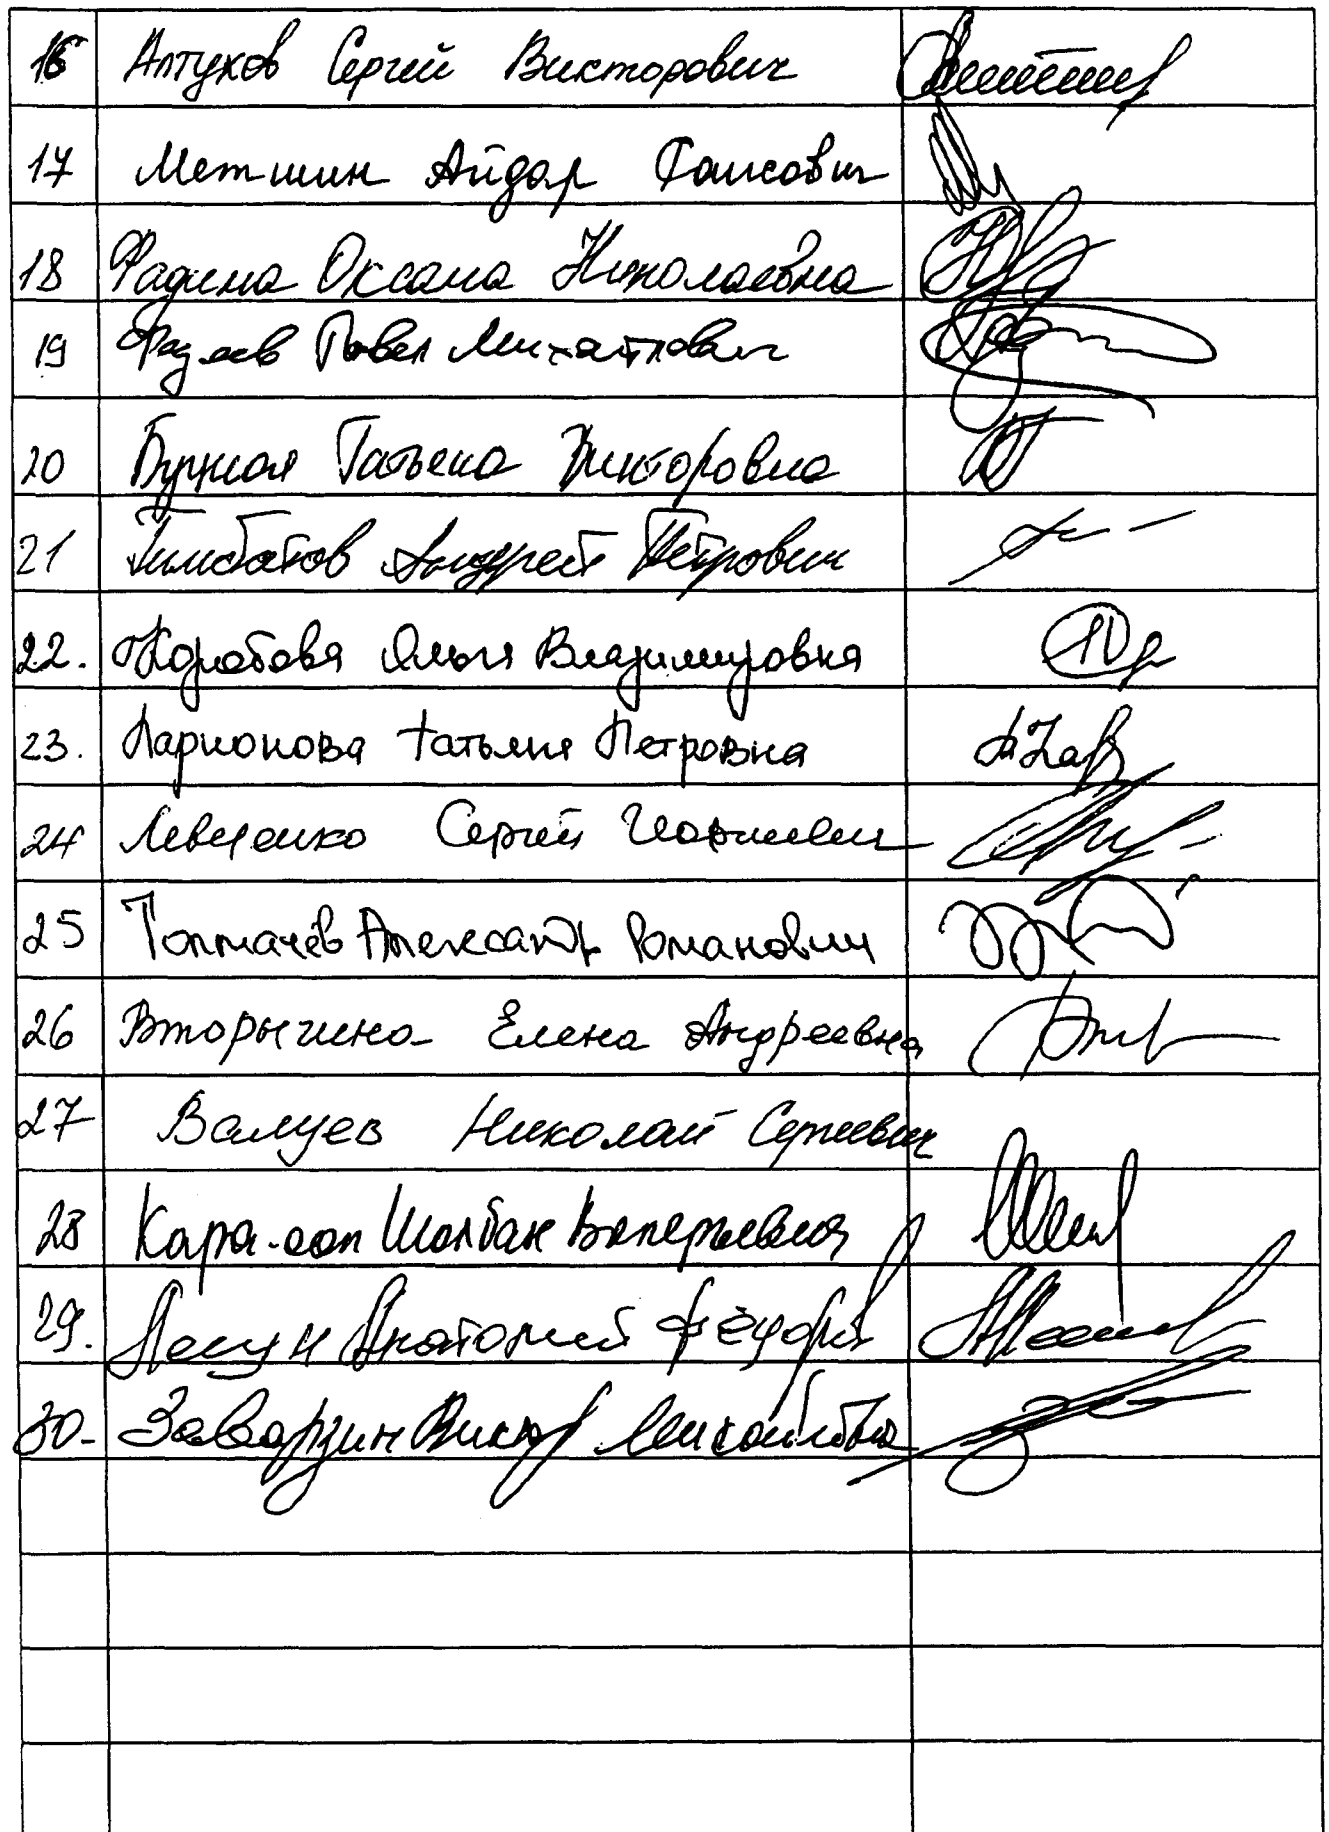 16 Алтухов Сергей Викторович
17 Метшин Айдар Гансович
18 Фадина Оксана Николаевна
19 Фадеев Павел Михайлович
20 Буцкая Татьяна Викторовна
21 Гимбатов Андрей Петрович
22. Коробова Ольга Владимировна
23. Ларионова Татьяна Петровна
24 Левченко Сергей Георгиевич
25 Толмачёв Александр Романович
26 Вторыгина Елена Андреевна
27 Валуев Николай Сергеевич
28 Кара-оол Шолбан Валерьевич
29. Лесун Анатолий Фёдоров
30. Заварзин Виктор Михайлович